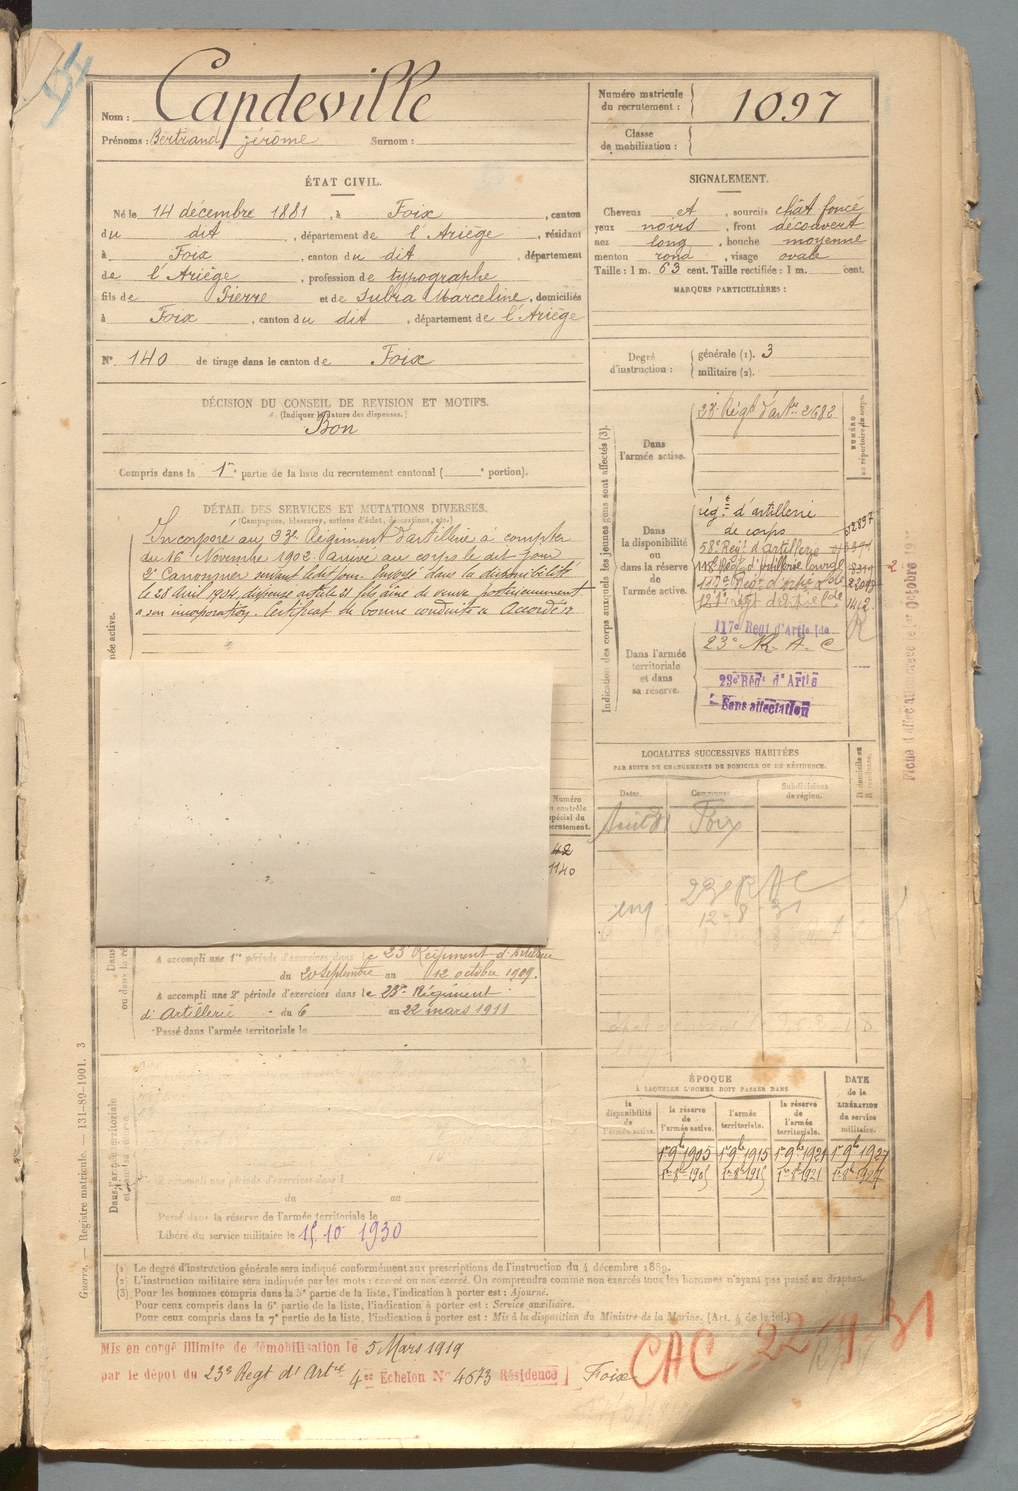 Nom : Capdeville
Prénoms : Bertrand Jérome Surnom :
Numéro matricule du recrutement : 1097
Classe de mobilisation :
ÉTAT CIVIL.
Né le 14 décembre 1881, à Foix, canton
du dit, département de l'Ariège, résidant
à Foix, canton du dit, département
de l'Ariège, profession de typographe
fils de Pierre et de Subra Marceline, domiciliés
à Foix, canton du dit, département de l'Ariège
No 140 de tirage dans le canton de Foix
DÉCISION DU CONSEIL DE REVISION ET MOTIFS.
(Indiquer la nature des dispenses.)
Bon
Compris dans la 1re partie de la liste du recrutement cantonal ( e portion).
SIGNALEMENT.
Cheveux et, sourcils chât foncé
yeux noirs, front découvert
nez long, bouche moyenne
menton rond, visage ovale
Taille : 1 m. 63 cent. Taille rectifiée : 1 m. cent.
MARQUES PARTICULIÈRES :
Degré d'instruction :
générale (1). 3
militaire (2).
DÉTAIL DES SERVICES ET MUTATIONS DIVERSES.
(Campagnes, blessures, actions d'éclat, décorations, etc.)
Incorporé au 23e Régiment d'artillerie à compter
du 16 Novembre 1902. Arrivé au corps le dit jour
2e Canonnier suivant le dit jour. Envoyé dans la disponibilité
le 23 Avril 1904, dispensé article 21 fils aîné de veuve postérieurement
a son incorporation. Certificat de bonne conduite Accordé
Indication des corps auxquels les jeunes gens sont affectés (3).
NUMÉRO au répertoire du corps.
Dans l'armée active.
23e Régt d'artie 2682
Dans la disponibilité ou dans la réserve de l'armée active.
régt d'artillerie
de corps
58e Régt d'artillerie
117e Régt d'artie lde
Dans l'armée territoriale et dans sa réserve.
117e Regt d'Artie lde
23e R. A. C
23e Régt d'Artie
Sans affectation
LOCALITÉS SUCCESSIVES HABITÉES
PAR SUITE DE CHANGEMENTS DE DOMICILE OU DE RÉSIDENCE.
Dates. Communes. Subdivisions de région. D domicile ou R résidence.
Foix
23e RAC
12-8-31
Numéro au contrôle spécial du recrutement.
42
1140
A accompli une 1re période d'exercices dans le 23e Régiment d'Artillerie
du 20 Septembre au 12 octobre 1909.
A accompli une 2e période d'exercices dans le 23e Régiment
d'Artillerie du 6 au 22 mars 1911
Passé dans l'armée territoriale le
Dans l'armée territoriale
A accompli une période d'exercices dans l
du au
Passé dans la réserve de l'armée territoriale le
Libéré du service militaire le 15 10 1930
ÉPOQUE
À LAQUELLE L'HOMME DOIT PASSER DANS
DATE de la LIBÉRATION du service militaire.
la disponibilité de l'armée active. la réserve de l'armée active. l'armée territoriale. la réserve de l'armée territoriale.
1er 9bre 1905 1er 9bre 1915 1er 9bre 1921 1er 9bre 1927
1er 8bre 1905 1er 8bre 1915 1er 8bre 1921 1er 8bre 1927
Guerre. — Registre matricule. — 131-89-1901. 3
(1) Le degré d'instruction générale sera indiqué conformément aux prescriptions de l'instruction du 4 décembre 1889.
(2) L'instruction militaire sera indiquée par les mots : exercé ou non exercé. On comprendra comme non exercés tous les hommes n'ayant pas passé au drapeau.
(3) Pour les hommes compris dans la 5e partie de la liste, l'indication à porter est : Ajourné.
Pour ceux compris dans la 6e partie de la liste, l'indication à porter est : Service auxiliaire.
Pour ceux compris dans la 7e partie de la liste, l'indication à porter est : Mis à la disposition du Ministre de la Marine. (Art. 4 de la loi.)
Mis en congé illimité de démobilisation le 5 Mars 1919
par le dépôt du 23e Regt d'Artie 4e Echelon No 4673 Résidence Foix
CAC 22-4-31